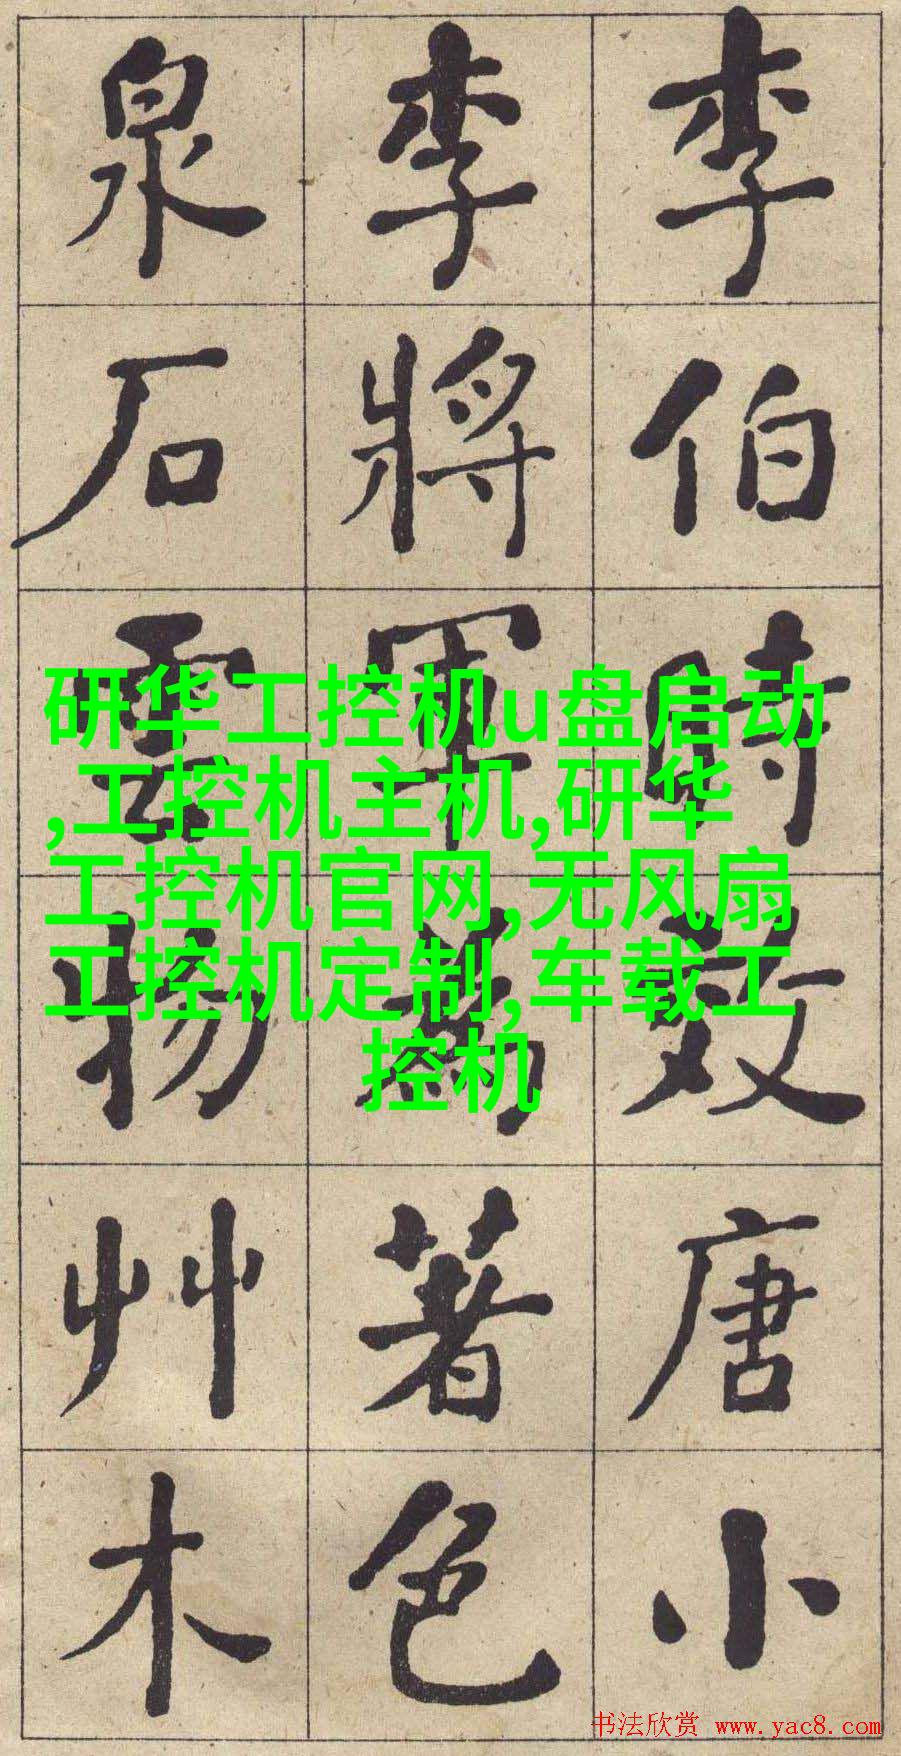 李伯時效唐小
李將軍為著色
泉石雲物艸木
研华工控机u盘启动
,工控机主机,研华
工控机官网,无风扇
工控机定制,车载工
控机
书法欣赏 www.yac8.com